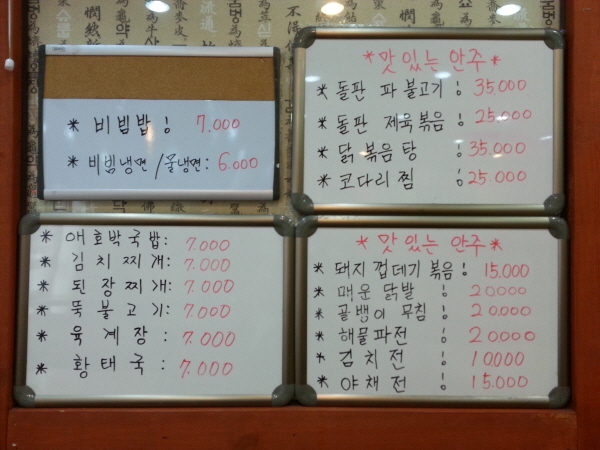 * 비빔밥 : 7.000
* 비빔냉면 / 물냉면 : 6.000
* 맛있는 안주 *
* 돌판 파 불고기 : 35.000
* 돌판 제육볶음 : 25.000
* 닭 볶음탕 : 35.000
* 코다리 찜 : 25.000
* 애호박국밥 : 7.000
* 김치찌개 : 7.000
* 된장찌개 : 7.000
* 뚝불고기 : 7.000
* 육계장 : 7.000
* 황태국 : 7.000
* 맛있는 안주 *
* 돼지 껍데기 볶음 : 15.000
* 매운 닭발 : 20000
* 골뱅이 무침 : 20000
* 해물파전 : 20000
* 김치전 : 10.000
* 야채전 : 15.000